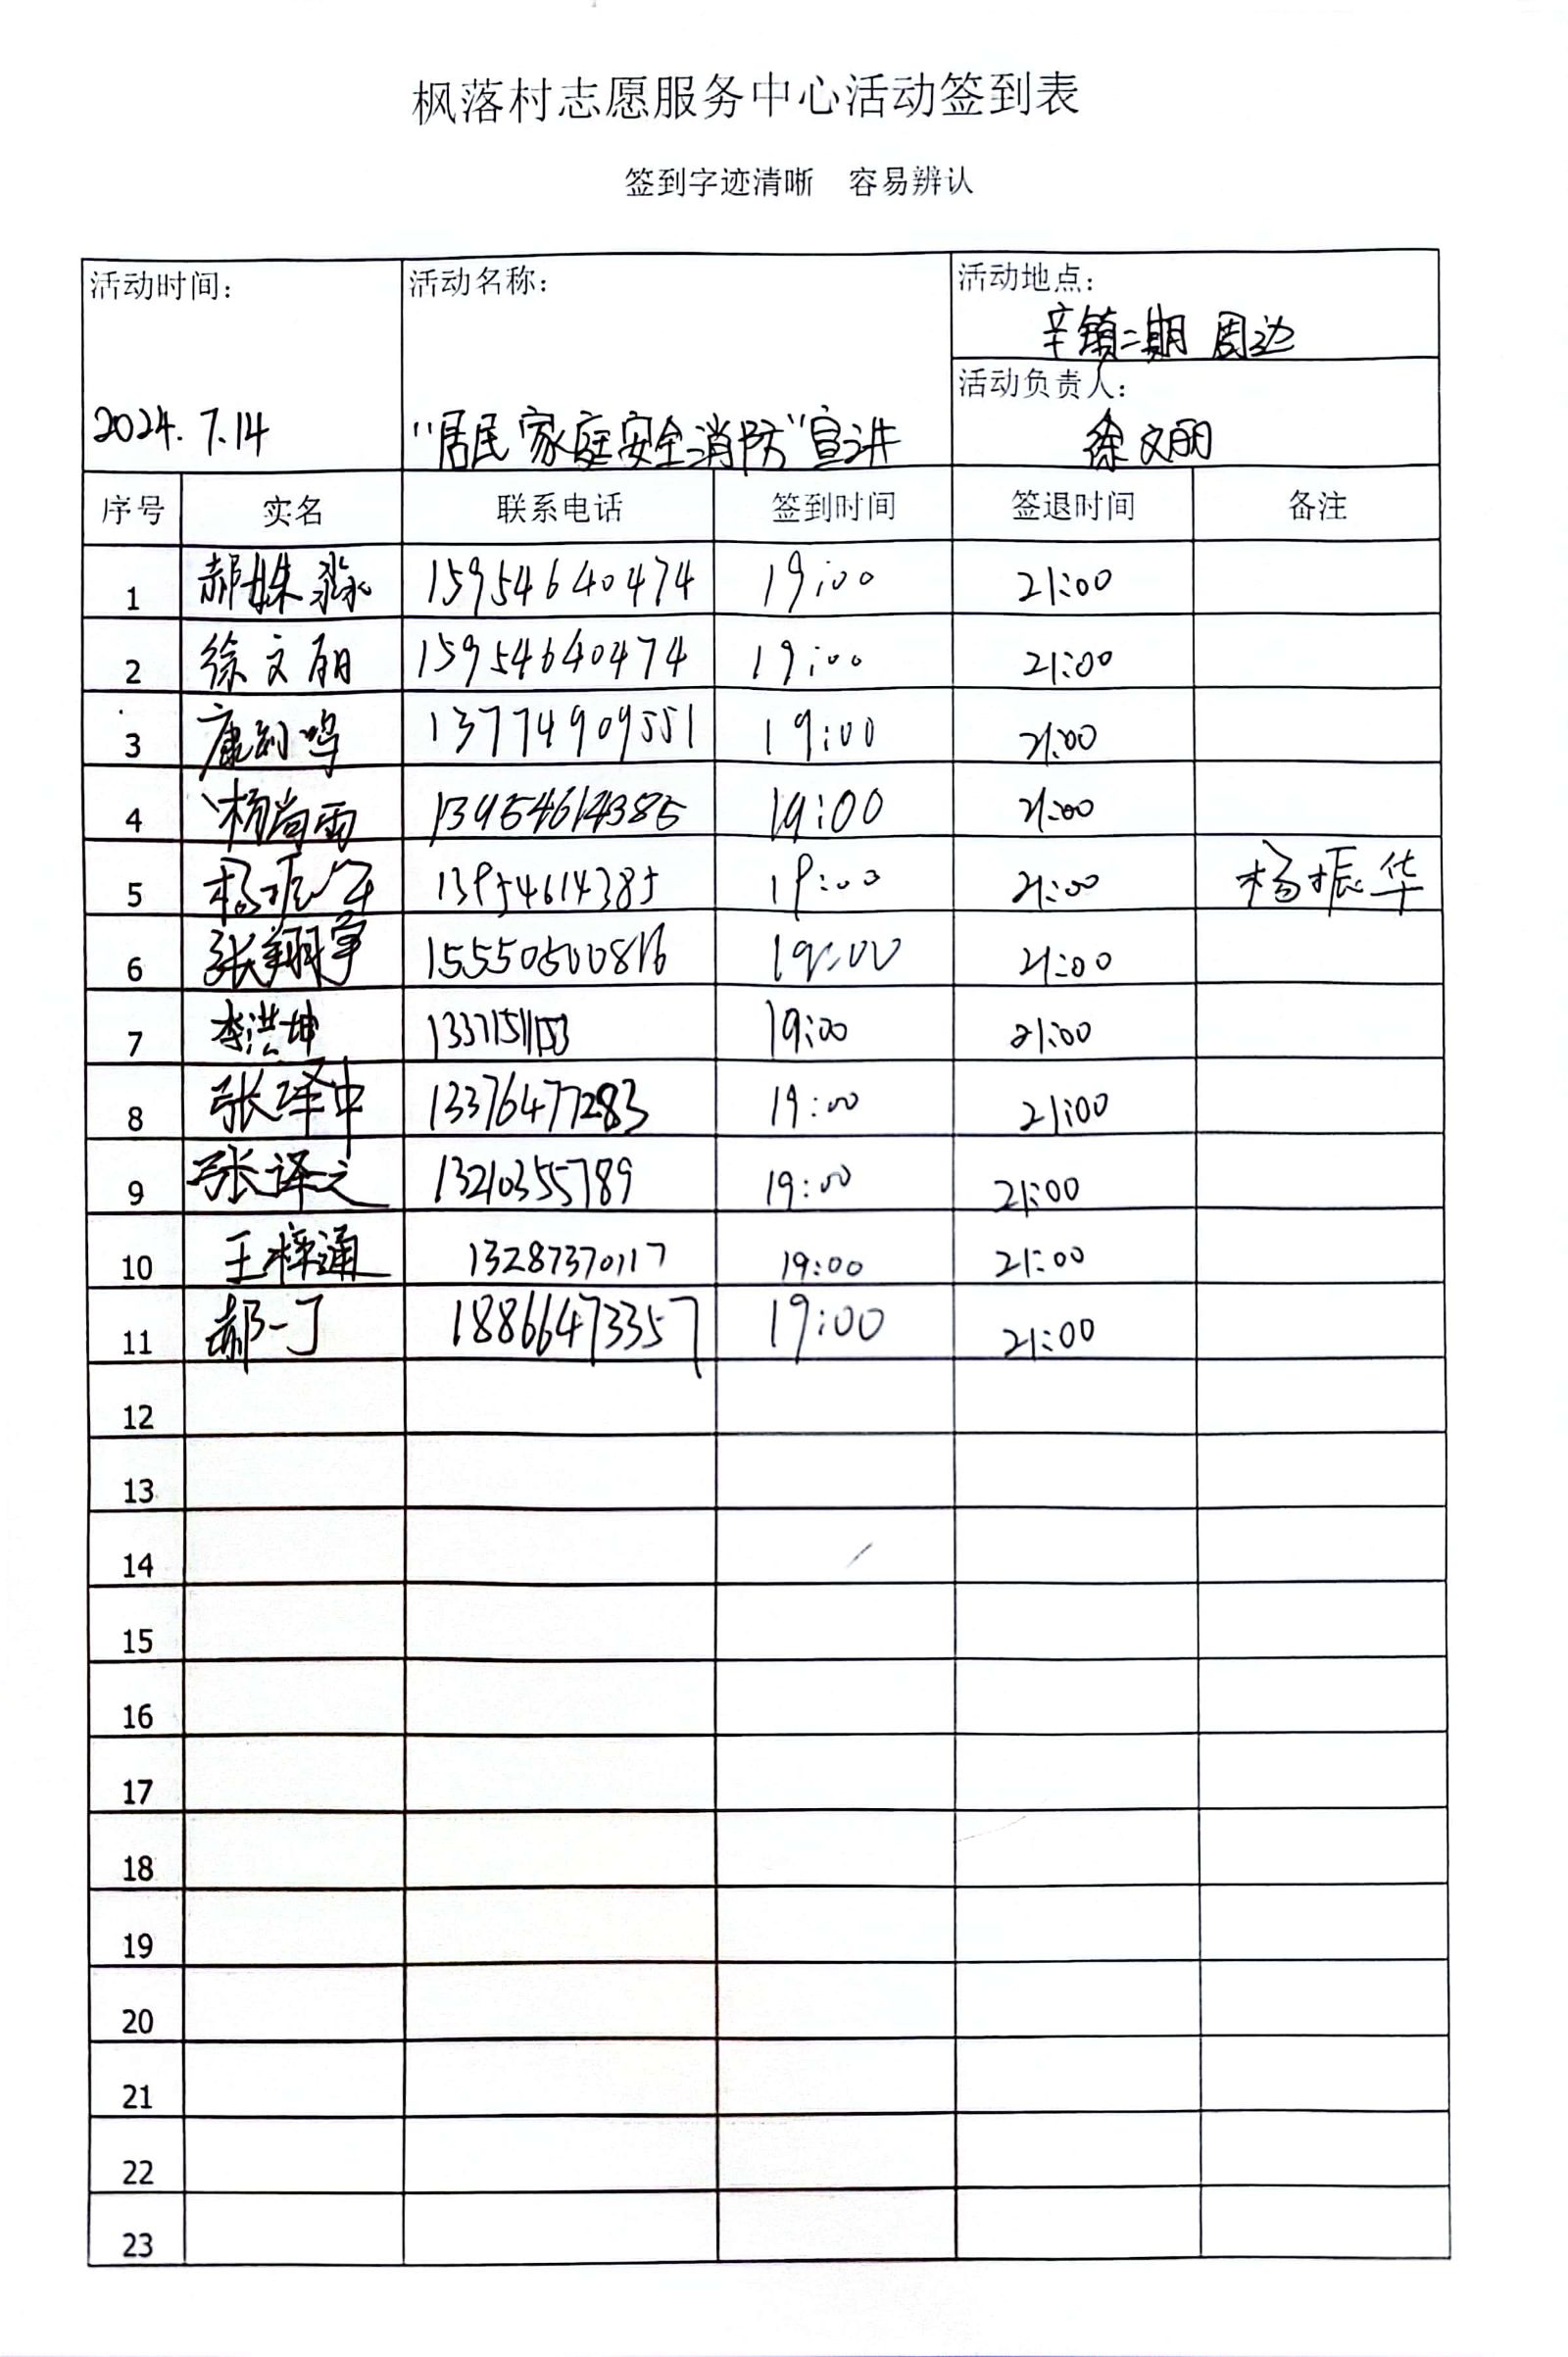 枫落村志愿服务中心活动签到表
签到字迹清晰 容易辨认
活动时间: 活动名称: 活动地点:
辛镇二期 周边
活动负责人:
2024.7.14 “居民家庭安全消防”宣讲 徐文丽
序号 实名 联系电话 签到时间 签退时间 备注
1 郝姝淼 15954640474 19:00 21:00
2 徐文丽 15954640474 19:00 21:00
3 13774909551 19:00 21:00
4 杨尚雨 13954614385 19:00 21:00
5 杨振华 13954614385 19:00 21:00 杨振华
6 张翔宁 15550500816 19:00 21:00
7 李洪坤 19:00 21:00
8 张泽中 13376477283 19:00 21:00
9 张译之 13210355789 19:00 21:00
10 王梓通 13287370117 19:00 21:00
11 郝一丁 18866473357 19:00 21:00
12
13
14
15
16
17
18
19
20
21
22
23